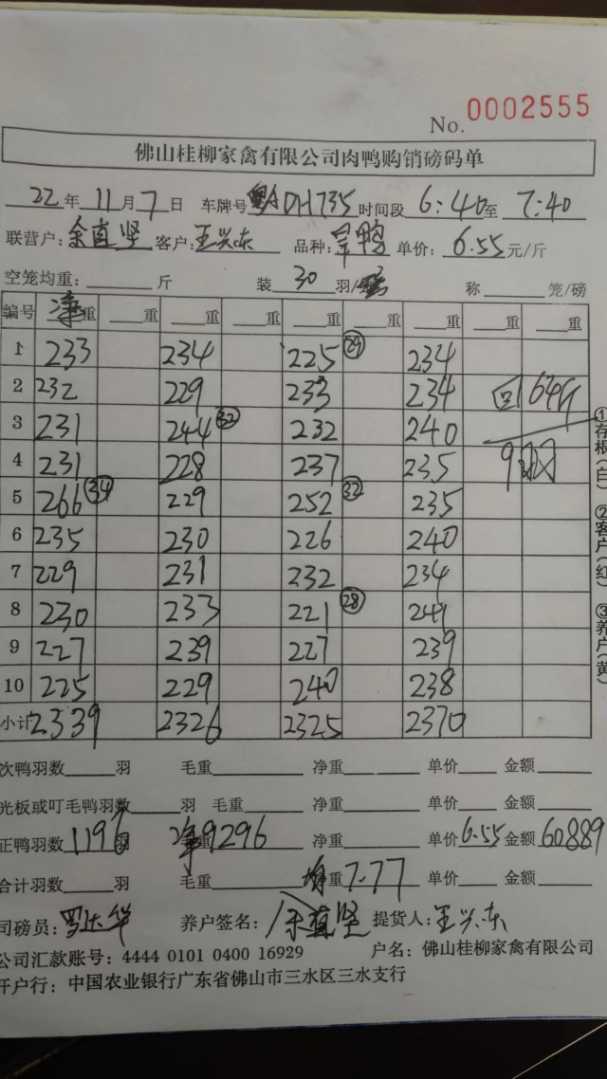 No. 0002555
佛山桂柳家禽有限公司肉鸭购销磅码单
22年11月7日 车牌号 DH735 时间段 6:40至 7:40
联营户: 余直坚 客户: 王兴东 品种: 单价: 6.55元/斤
空笼均重: 斤 装 30 羽/ 称 笼/磅
编号 净重 重 重 重 重 重 重 重 重
1 233 234 225 ㉙ 234
2 232 229 233 234 回1 64斤
3 231 244 ㉜ 232 240
4 231 228 237 235
5 266 ㉞ 229 252 ㉜ 235
6 235 230 226 240
7 229 231 232 234
8 230 233 221 ㉘ 241
9 227 239 227 239
10 225 229 240 238
小计 2339 2326 2325 2370
次鸭羽数 羽 毛重 净重 单价 金额
光板或叮毛鸭羽数 羽 毛重 净重 单价 金额
正鸭羽数 1196 羽 净9296 净重 单价 6.55 金额 60889
合计羽数 羽 毛重 均重 7.77 单价 金额
司磅员: 罗达华 养户签名: 余直坚 提货人: 王兴东
公司汇款账号: 4444 0101 0400 16929 户名: 佛山桂柳家禽有限公司
开户行: 中国农业银行广东省佛山市三水区三水支行
①存根(白) ②客户(红) ③养户(黄)